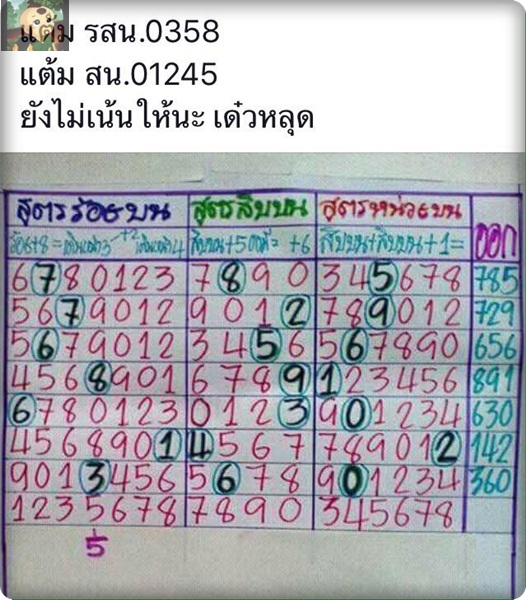 แต้ม รสน.0358
แต้ม สน.01245
ยังไม่เน้นให้นะ เด๋วหลุด
สูตรร้อยบน สูตรสิบบน สูตรหน่วยบน ออก
ร้อย+8= +2 สิบบน+5 = +6 สิบบน+สิบบน+1=
6780123 7890 345678 785
5679012 9012 789012 729
5679012 3456 567890 656
4568901 6789 123456 891
6780123 0123 901234 630
4568901 4567 789012 142
9013456 5678 901234 360
1235678 7890 345678
5